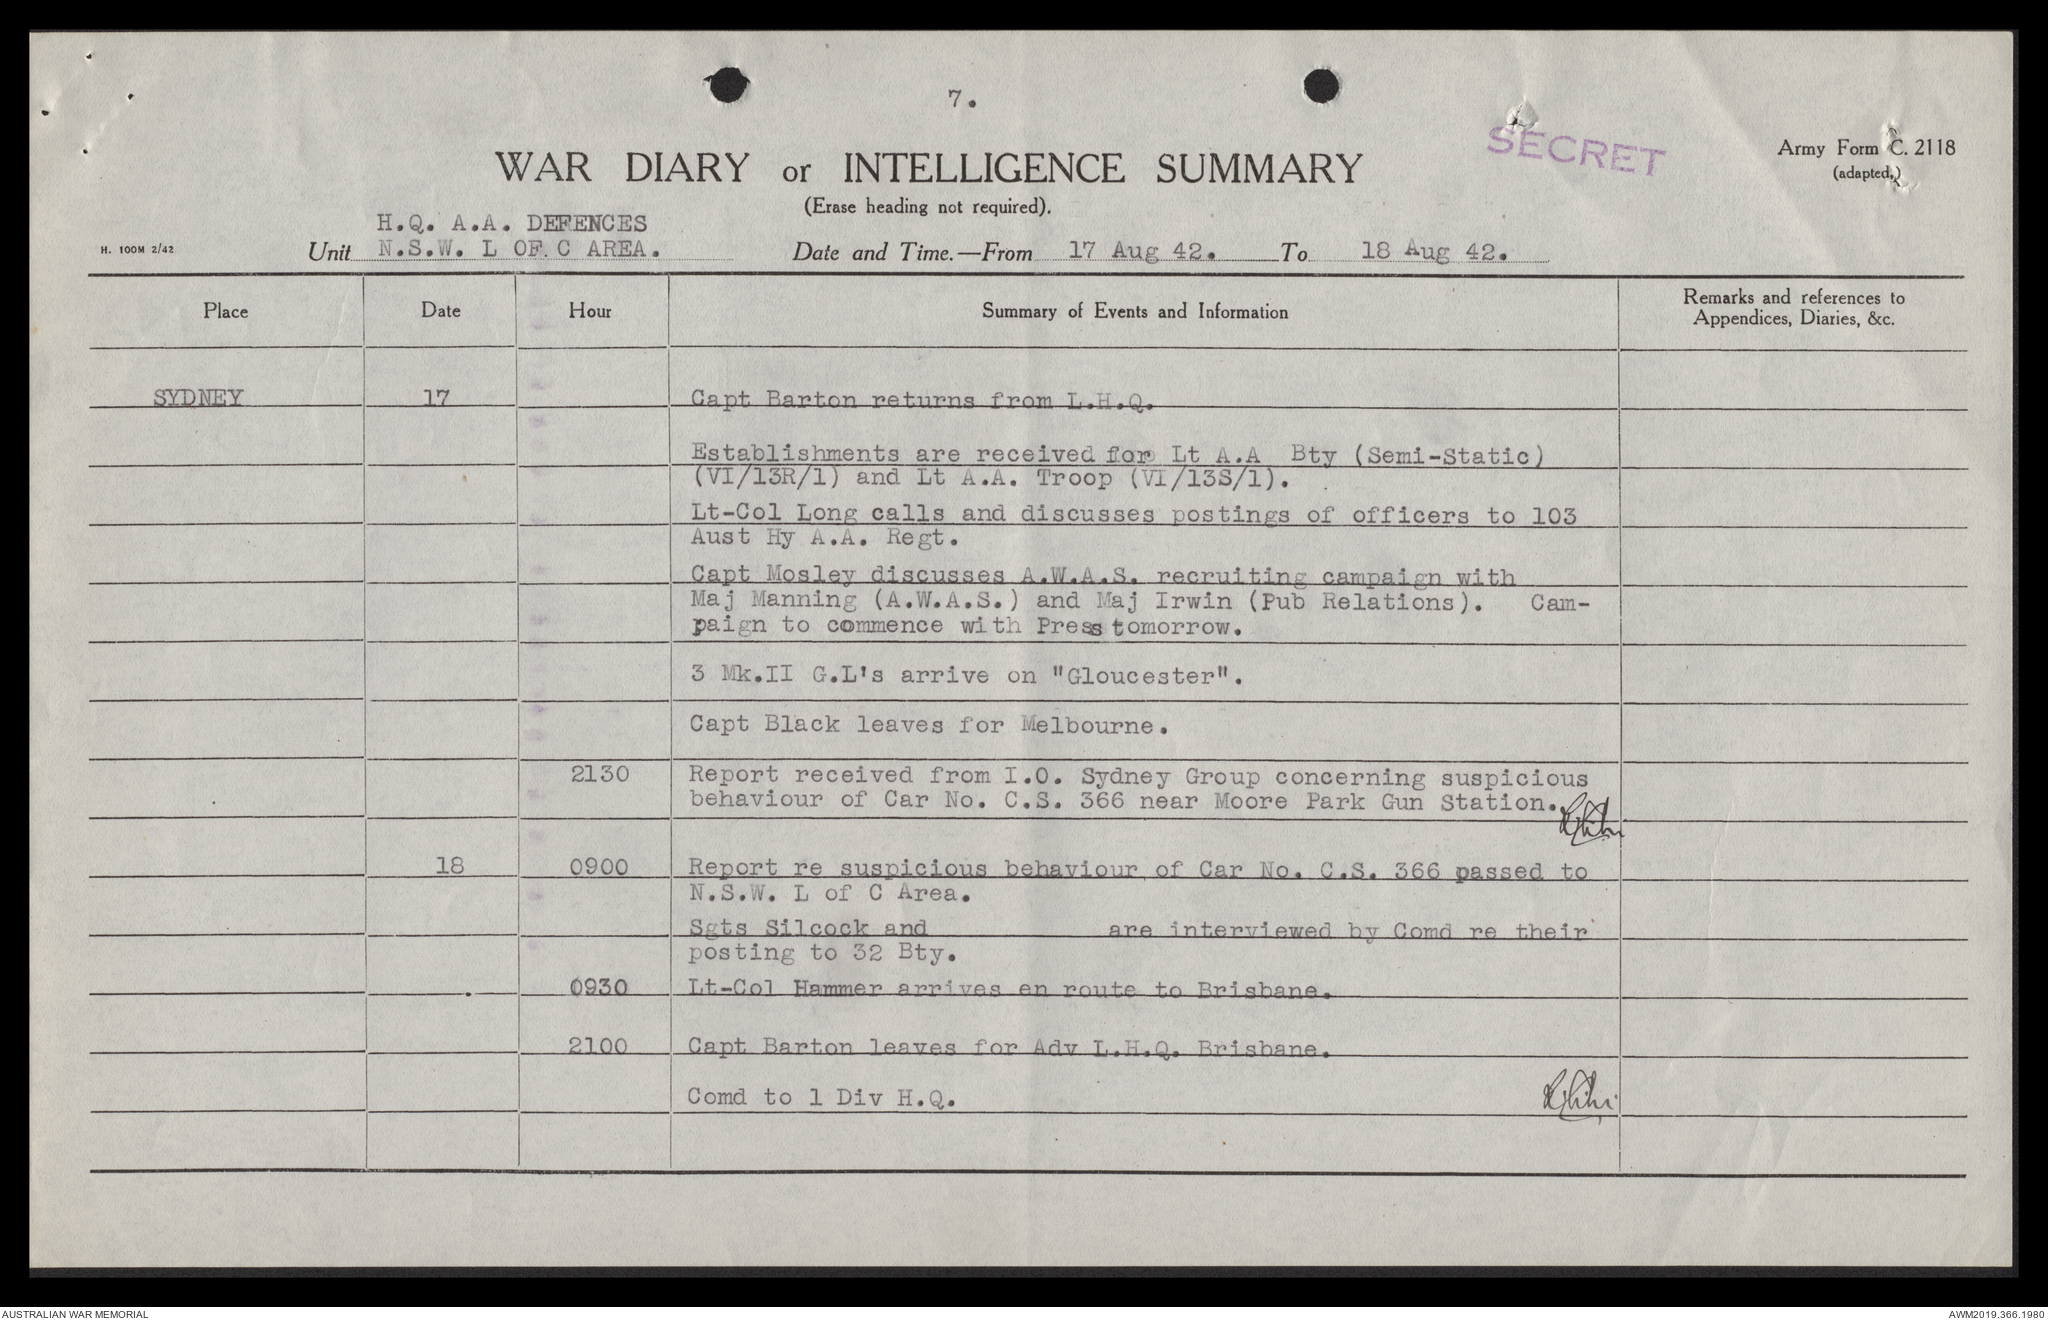 7.
SECRET
WAR DIARY or INTELLIGENCE SUMMARY
Army Form C. 2118
(adapted.)
(Erase heading not required).
H. 100M 2/42
H.Q. A.A. DEFENCES
Unit N.S.W. L OF C AREA.
Date and Time.—From 17 Aug 42. To 18 Aug 42.
Place Date Hour Summary of Events and Information Remarks and references to
Appendices, Diaries, &c.
SYDNEY 17 Capt Barton returns from L.H.Q.
Establishments are received for Lt A.A Bty (Semi-Static)
(VI/13R/1) and Lt A.A. Troop (VI/13S/1).
Lt-Col Long calls and discusses postings of officers to 103
Aust Hy A.A. Regt.
Capt Mosley discusses A.W.A.S. recruiting campaign with
Maj Manning (A.W.A.S.) and Maj Irwin (Pub Relations). Cam-
paign to commence with Press tomorrow.
3 Mk.II G.L's arrive on "Gloucester".
Capt Black leaves for Melbourne.
2130 Report received from I.O. Sydney Group concerning suspicious
behaviour of Car No. C.S. 366 near Moore Park Gun Station.
18 0900 Report re suspicious behaviour of Car No. C.S. 366 passed to
N.S.W. L of C Area.
Sgts Silcock and are interviewed by Comd re their
posting to 32 Bty.
0930 Lt-Col Hammer arrives en route to Brisbane.
2100 Capt Barton leaves for Adv L.H.Q. Brisbane.
Comd to 1 Div H.Q.
AUSTRALIAN WAR MEMORIAL
AWM2019.366.1980